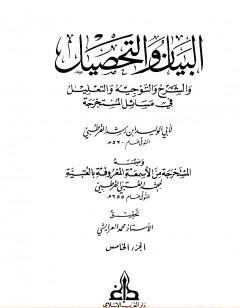 البيان والتحصيل
والشرح والتوجيه والتعليل
في مسائل المستخرجة
لأبي الوليد ابن رشد القرطبي
المتوفى عام ٥٢٠ هـ
وضمنه
المستخرجة من الأسمعة المعروفة بالعتبية
لمحمد العتبي القرطبي
المتوفى عام ٢٥٥ هـ
تحقيق
الأستاذ محمد العرايشي
الجزء الخامس
دار الغرب الإسلامي